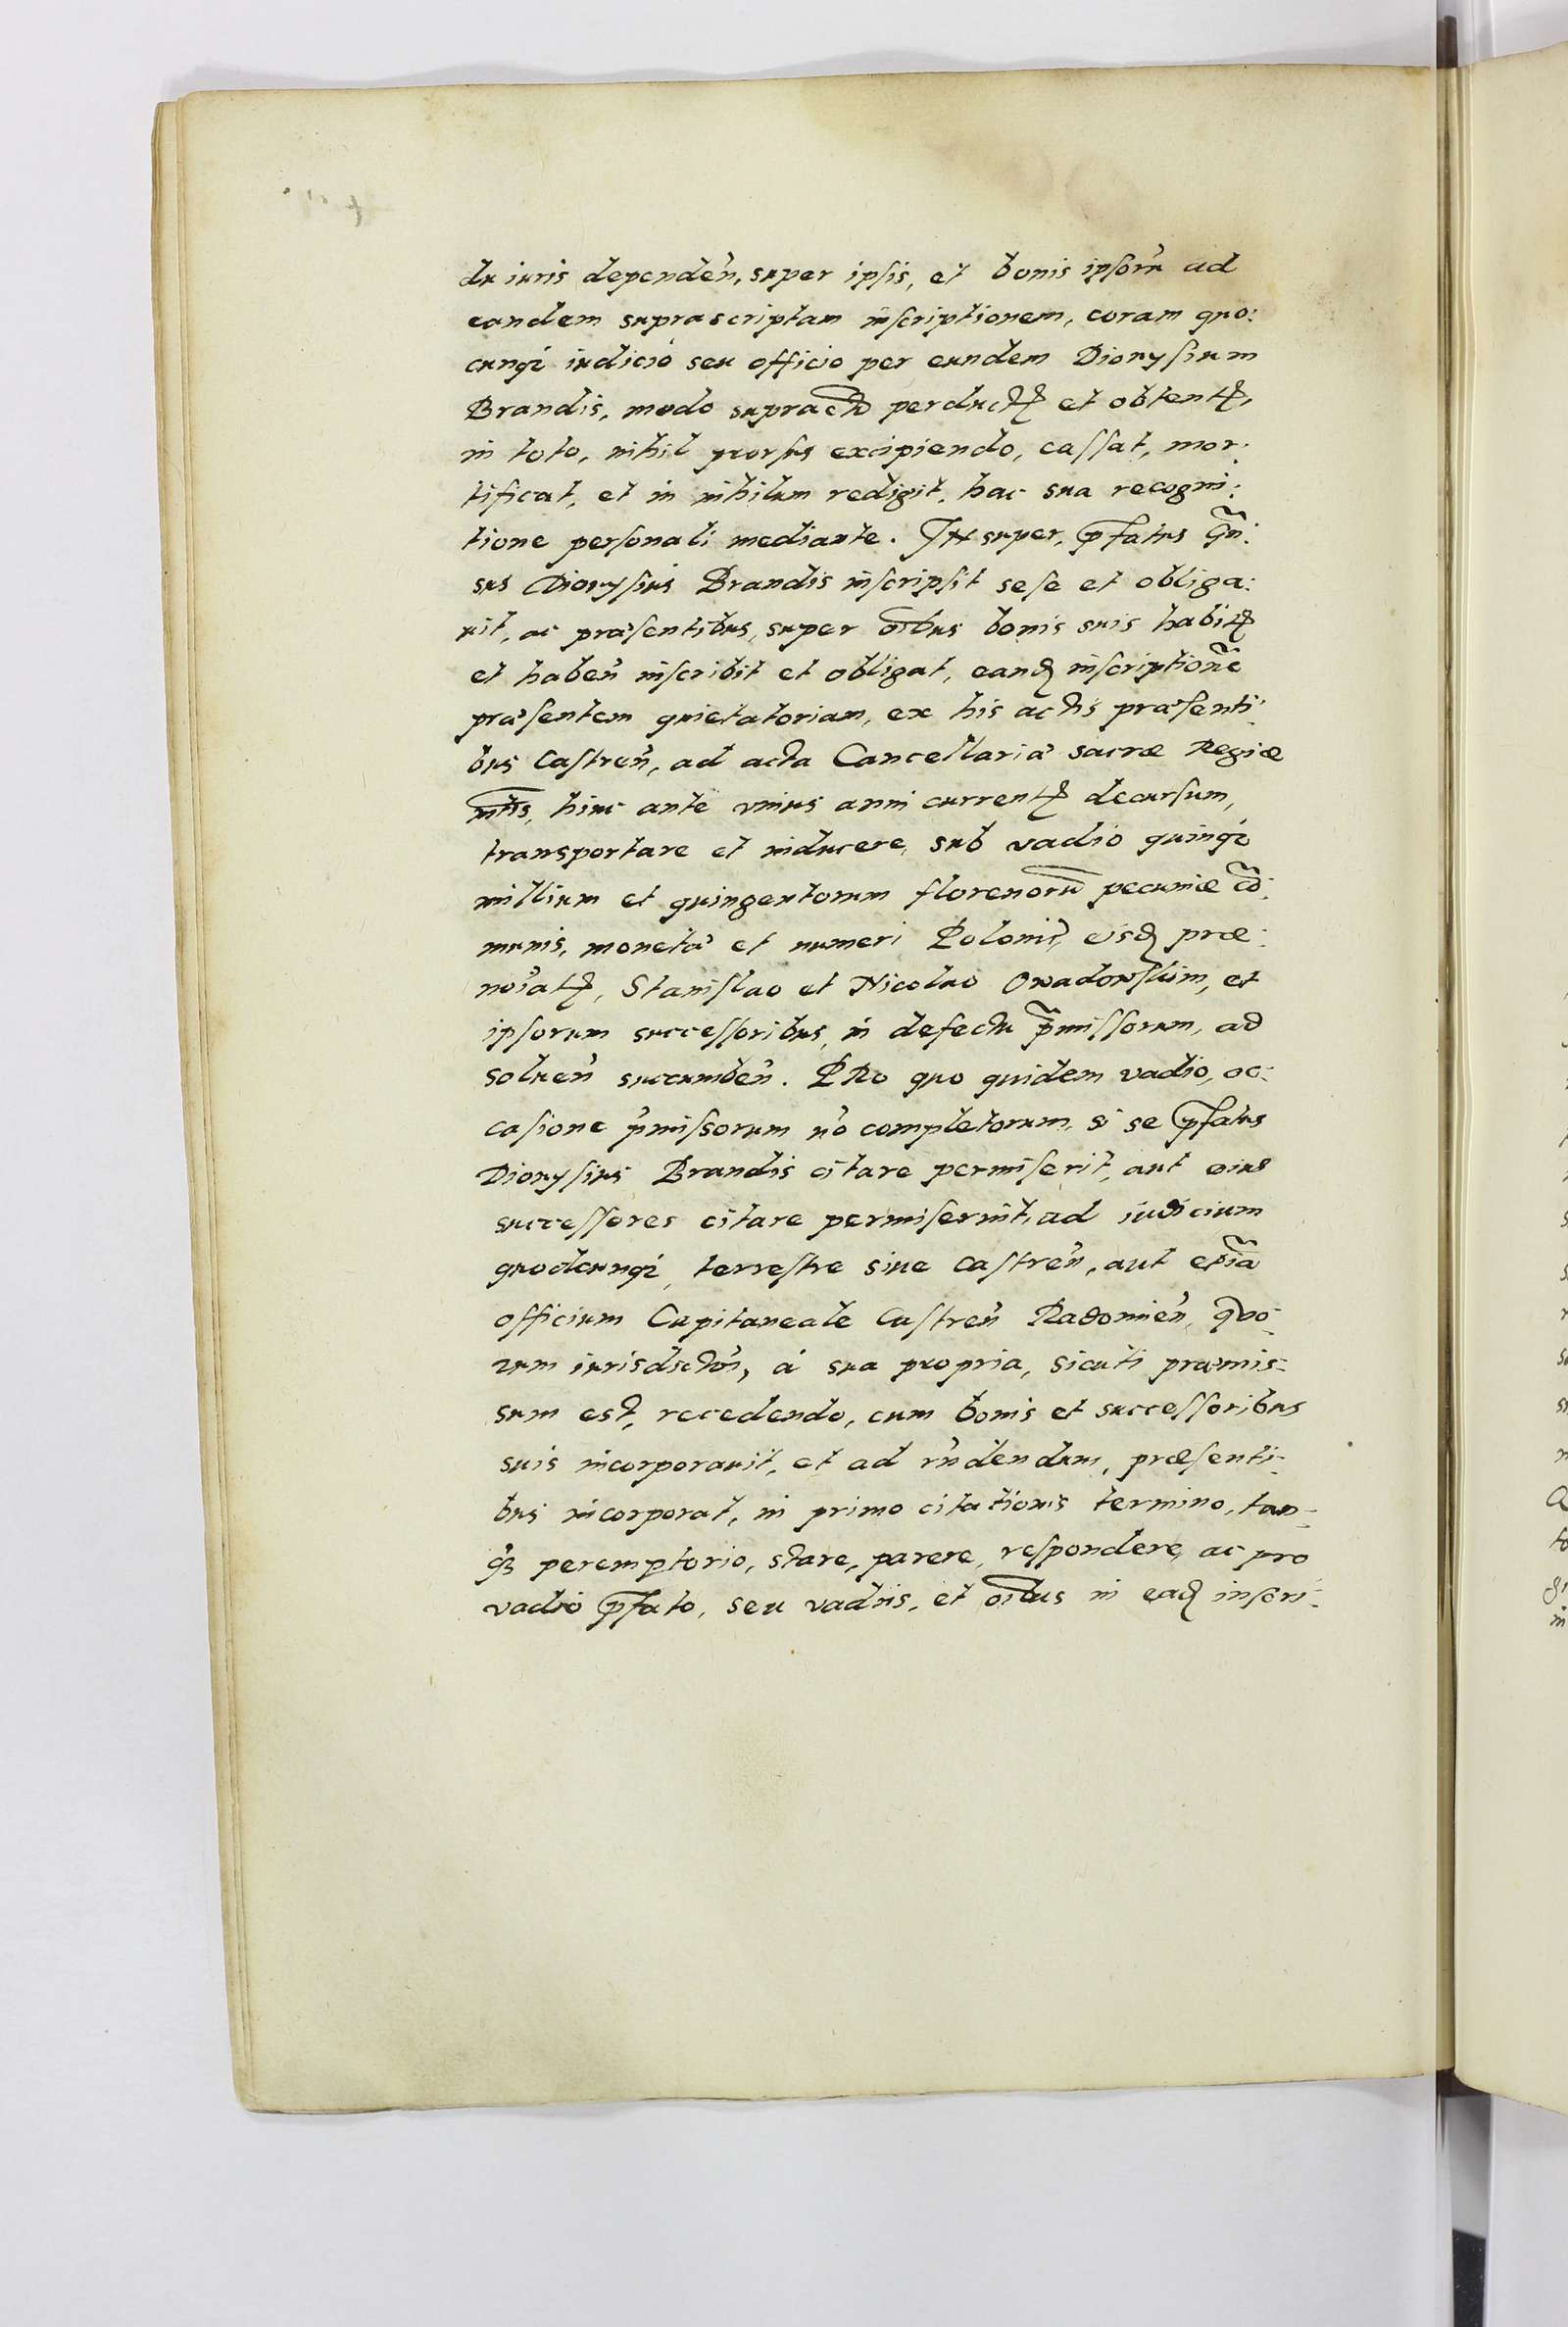 du iuris dependeñ, super ipsis, et bonis ipsorũ ad
eandem suprascriptam inscriptionem, coram quo:
cunq; iudicio seu officio per eundem Dionysium
Brandis, modo supracto perductꝭ et obtentꝭ,
in toto, nihil prorsus excipiendo, cassat, mor:
tificat, et in nihilum redigit, hac sua recogni:
tione personali mediante. INsuper, p̃fatus gñi:
sus Dionysius Brandis inscripsit sese et obliga:
uit, ac præsentibus, super oibus bonis suis habitꝭ
et habeñ inscribit et obligat, eandꝫ inscriptionẽ
præsentem quietatoriam, ex his actis præsenti:
bus Castreñ, ad acta Cancellariæ sacræ Regiæ
mtis, hinc ante vnius anni currentꝭ decursum,
transportare et inducere, sub vadio quinq;
millium et quingentorum florenorũ pecuniæ cõ:
munis, monetæ et numeri Polonic̃, eisdꝫ præ:
noiatꝭ, Stanislao et Nicolao Owadowskim, et
ipsorum successoribus, in defectu p̃missorum, ad
solueñ succumbeñ. PRo quo quidem vadio, oc:
casione p̃missorum nõ completorum, si se p̃fatus
Dionysius Brandis citare permiserit, aut eius
successores citare permiserint, ad iudicium
quodcunq;, terrestre siue castreñ, aut etiã
officium Capitaneale Castreñ Radomieñ, quo:
rum iurisdictoñi, à sua propria, sicuti præmis:
sum est, recedendo, cum bonis et successoribus
suis incorporauit, et ad rñdendum, præsenti:
bus incorporat, in primo citationis termino, tan:
qꝫ peremptorio, stare, parere, respondere, ac pro
vadio p̃fato, seu vadiis, et oibus in eadꝫ inscri: